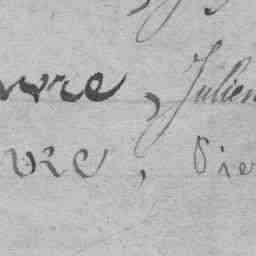 uvre, Julien
vre, Pie